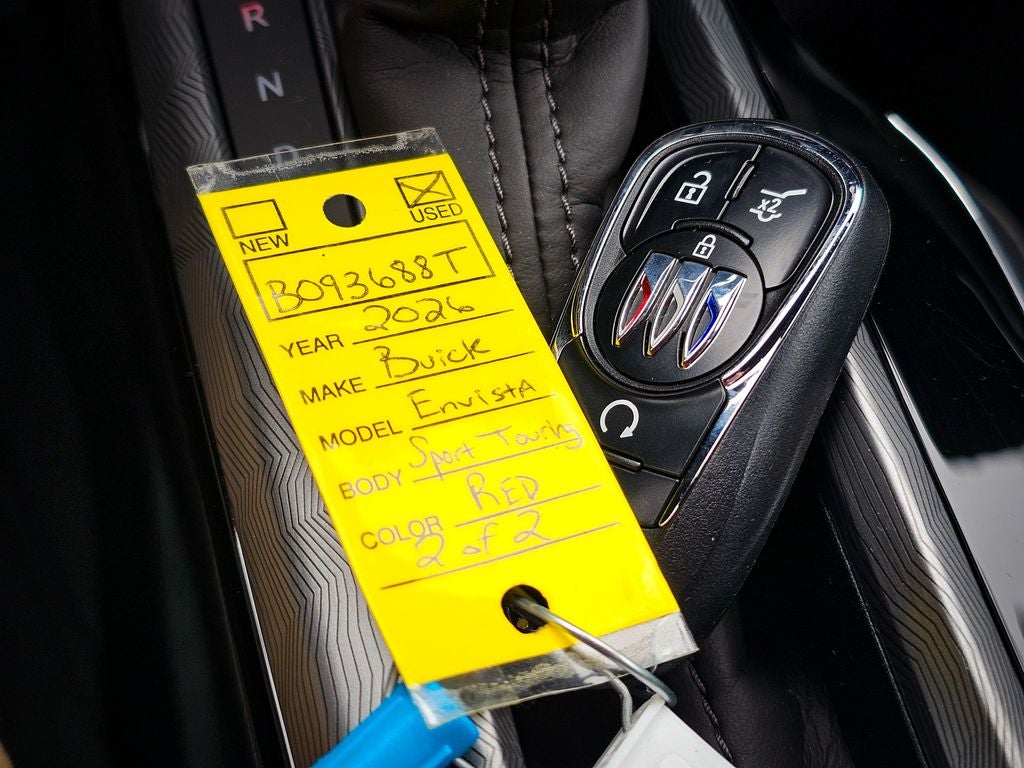 R
N
D
NEW
USED
B093688T
YEAR 2026
MAKE Buick
MODEL Envista
BODY Sport Touring
COLOR RED
2 of 2
x2